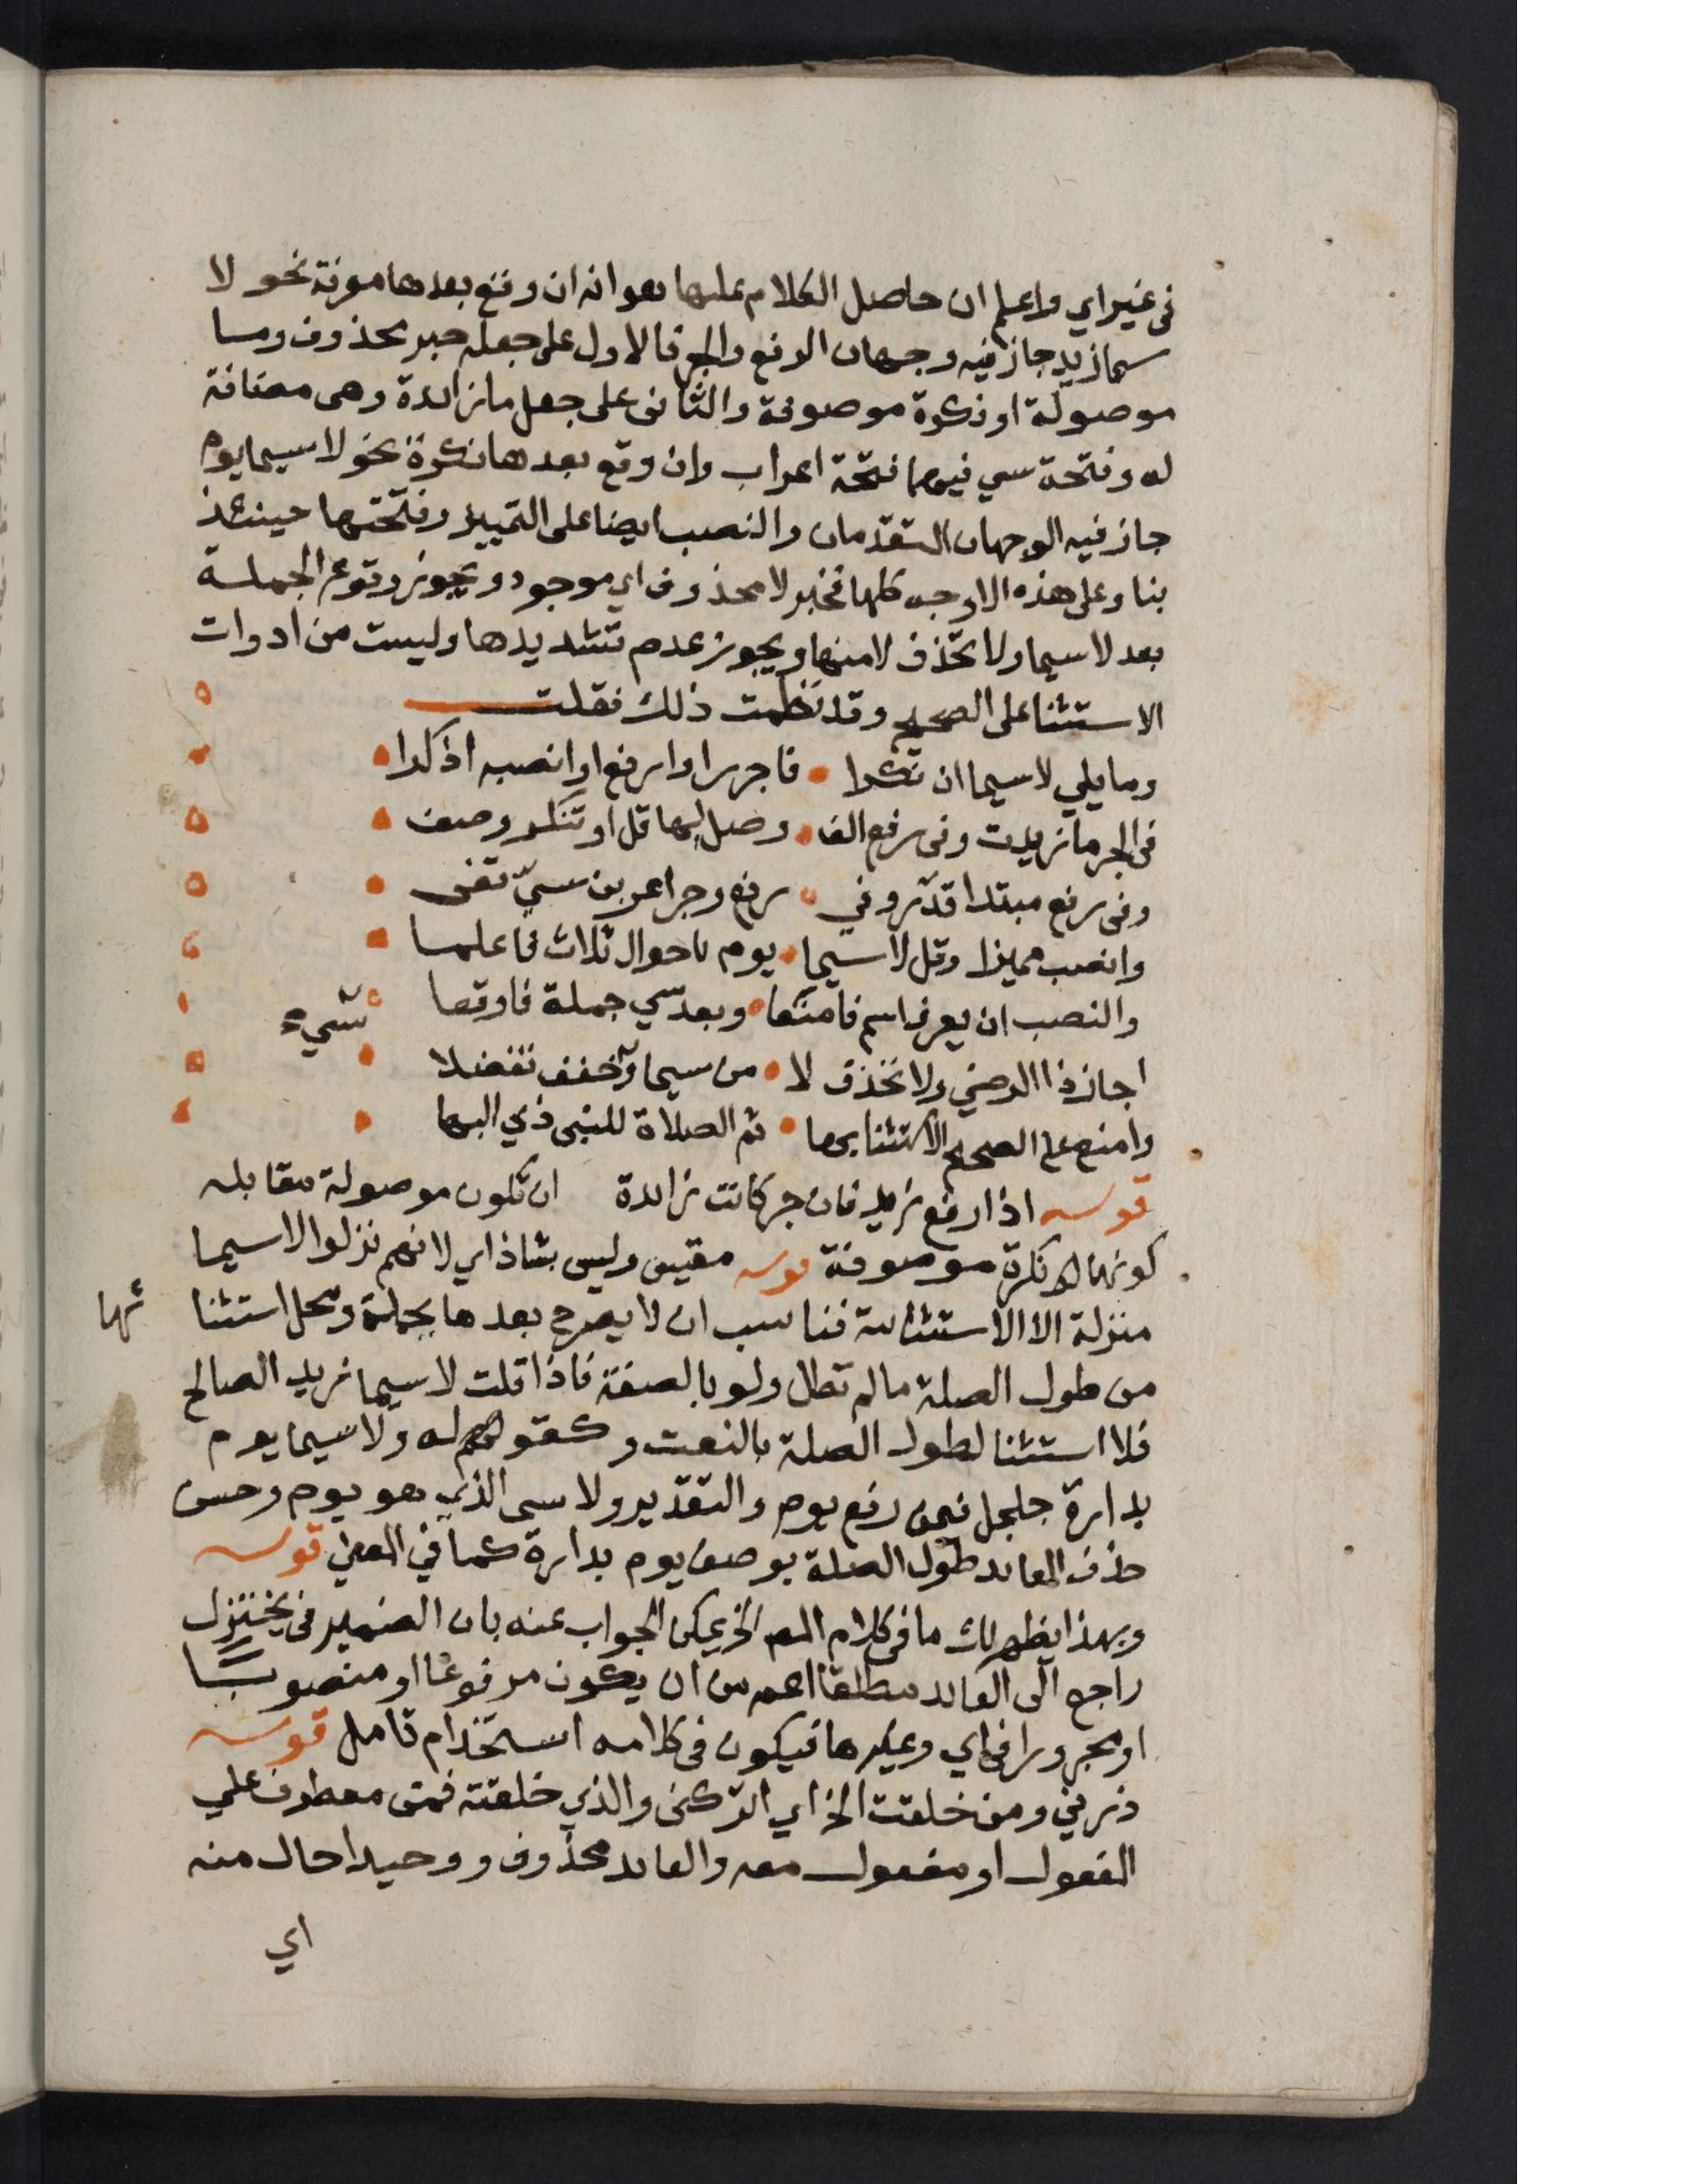 في غير اي واعلم ان حاصل الكلام عليها هو انه ان وقع بعدها معرفة نحو لا
سيما زيد جاز فيه وجهان الرفع والجر فالاول على جعله خبر محذوف وما
موصولة او نكرة موصوفة والثاني على جعل ما زائدة وهي مضافة
له وفتحة سي فيهما فتحة اعراب وان وقع بعدها نكرة نحو لا سيما يوم
جاز فيه الوجهان المتقدمان والنصب ايضا على التمييز وفتحتها حينئذ
بنا وعلى هذه الاوجه كلها فخبر لا محذوف اي موجود ويجوز وقوع الجملة
بعد لا سيما ولا تحذف لا منها ويجوز عدم تشديدها وليست من ادوات
الاستثنا على الصحيح وقد نظمت ذلك فقلت
وما يلي لا سيما ان نكرا • فاجرر او ارفع او انصبه اذكرا •
في الجر ما زيدت وفي رفع الف • وصل لها قل او تنكر وصف •
وفي رفع مبتدا قدّر وفي • رفع وجر اعربن سيّ تفي •
وانصب مميزا وقل لا سيما • يوم باحوال ثلاث فاعلما •
والنصب ان يعرف اسم فامنعا • وبعد سي جملة فاوقعا •
شيء
اجاز ذا الرضي ولا تحذف لا • من سيما وخفف تفضلا •
وامنع على الصحيح الاستثنا بها • ثم الصلاة للنبي ذي البها •
قوله اذا رفع زيد فان جر كانت زائدة ان تكون موصولة مقابله
كونها نكرة موصوفة قوله مقيس وليس بشاذ اي لانهم نزلوا لا سيما
منزلة الا الاستثنائية فناسب ان لا يصرح بعدها بجملة ومحل استثنا
ئها
من طول الصلة ما لم تطل ولو بالصفة فاذا قلت لا سيما زيد الصالح
فلا استثنا لطول الصلة بالنعت وكقولهم له ولا سيما يوم
بدارة جلجل فيمن رفع يوم والتقدير ولا سي الذي هو يوم وحسن
حذف العائد طول الصلة بوصف يوم بدارة كما في المغني قوله
وبهذا يظهر لك ما في كلام المص الخ يمكن الجواب عنه بان الضمير في يختزل
راجع الى العائد مطلقا اعم من ان يكون مرفوعًا او منصوبًا
او مجرورا في اي وغيرها فيكون في كلامه استخدام تامل قوله
ذرني ومن خلقت الخ اي اتركني والذي خلقته فمن معطوف على
المفعول او مفعول معه والعائد محذوف ووحيدا حال منه
اي